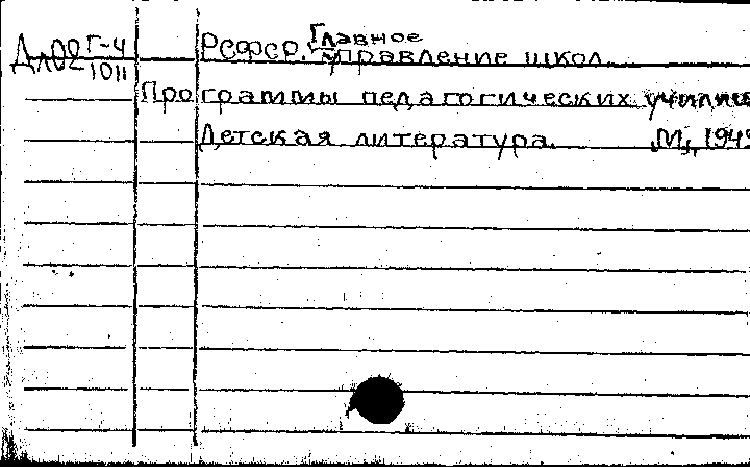 Дл02 Г-4
1011
РСФСР. Главное
управление школ.
Программы педагогических училищ
Детская литература. М., 1949